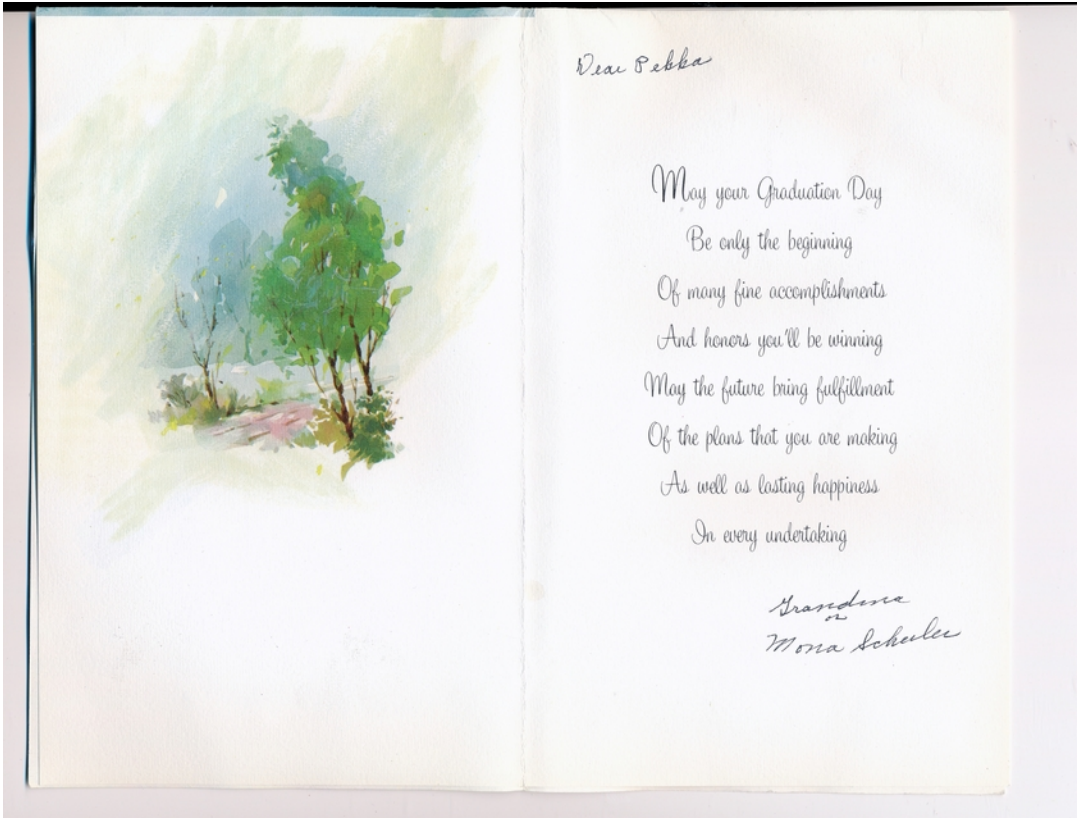 Dear Pekka
May your Graduation Day
Be only the beginning
Of many fine accomplishments
And honors you'll be winning
May the future bring fulfillment
Of the plans that you are making
As well as lasting happiness
In every undertaking
Grandma
or
Mona Scheuler